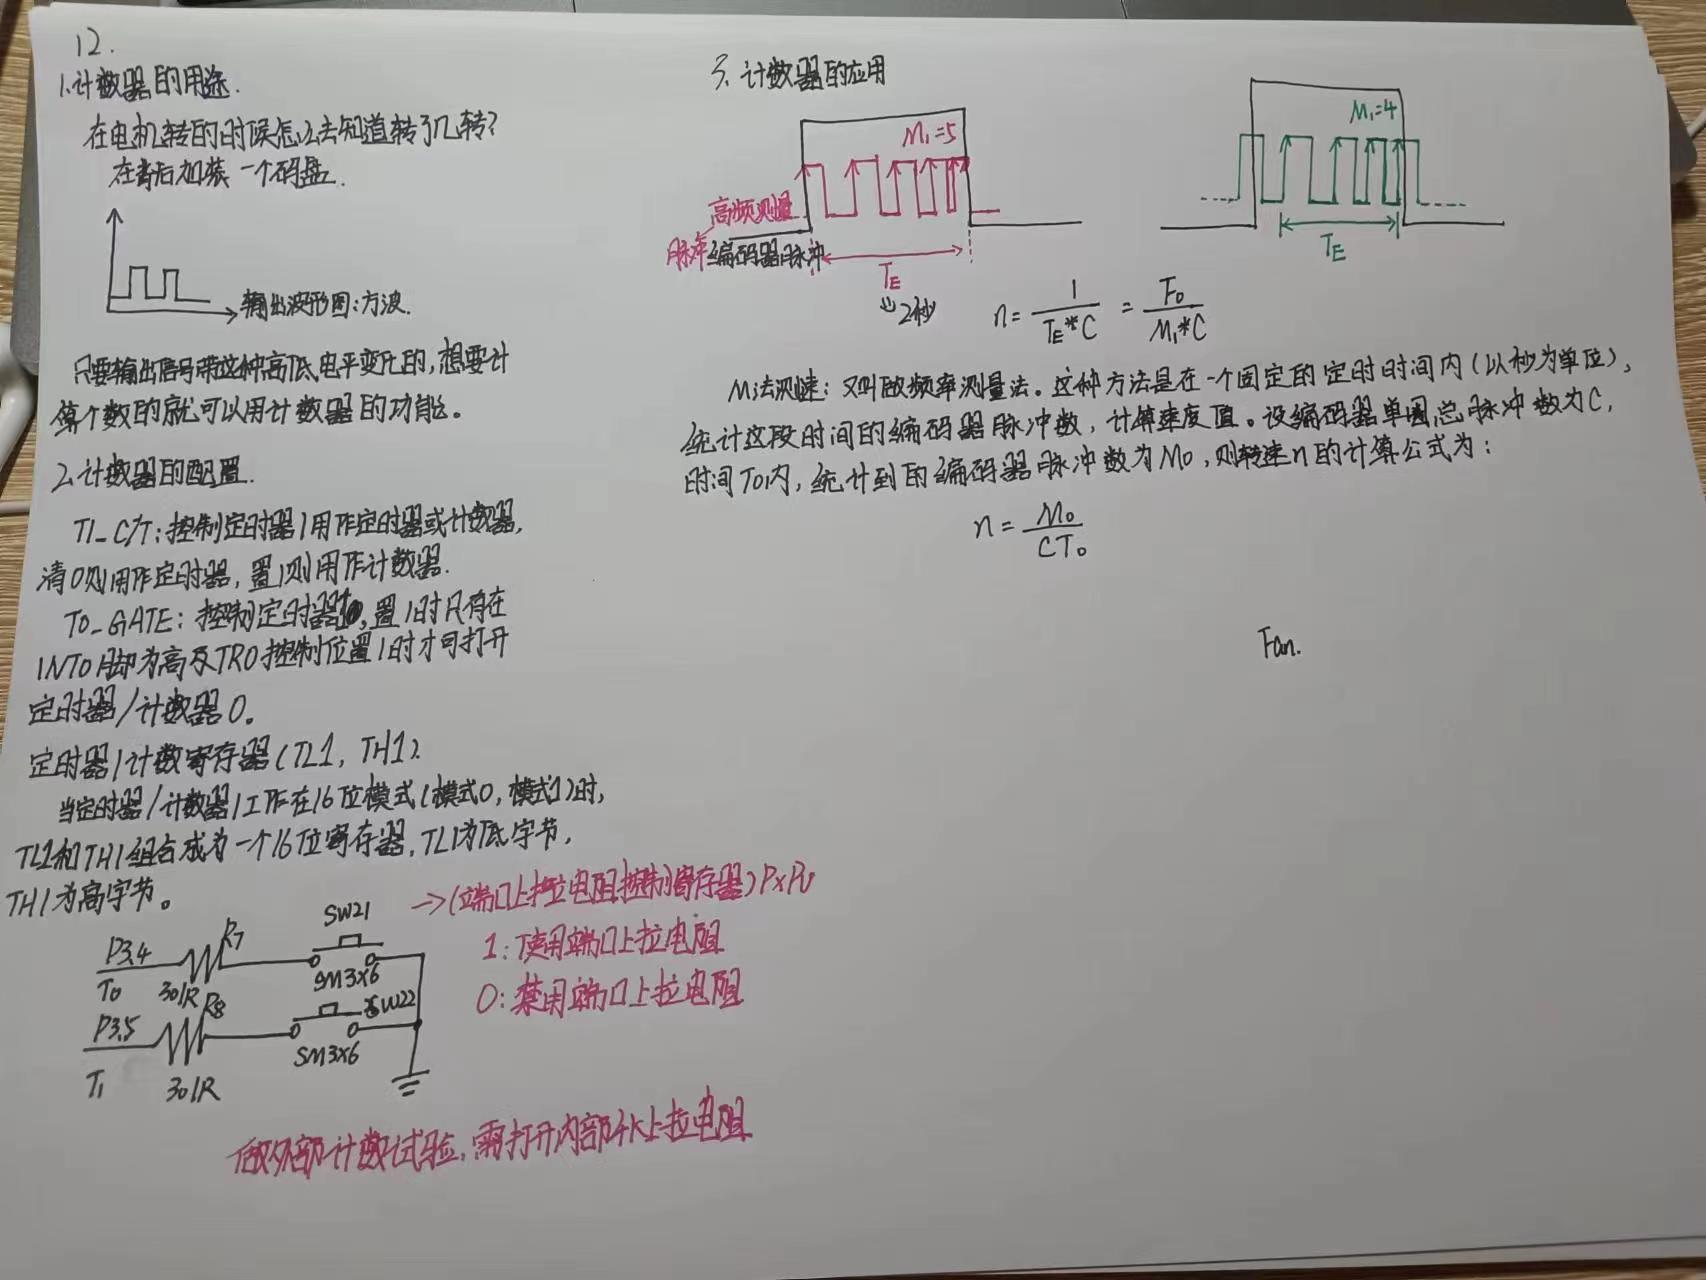 12.
1.计数器的用途.
在电机转的时候怎么去知道转了几转?
在背后加装一个码盘.
输出波形图:方波.
只要输出信号带这种高低电平变化的,想要计
算个数的就可以用计数器的功能。
2.计数器的配置.
T1_C/T:控制定时器1用作定时器或计数器,
清0则用作定时器,置1则用作计数器.
T0_GATE:控制定时器0,置1时只有在
INT0脚为高及TR0控制位置1时才可打开
定时器/计数器0。
定时器1计数寄存器(TL1,TH1).
当定时器/计数器1工作在16位模式(模式0,模式1)时,
TL1和TH1组合成为一个16位寄存器,TL1为低字节,
TH1为高字节。
P3.4
T0
R7
301R
SW21
SM3X6
P3.5
T1
R8
301R
SW22
SM3X6
→(端口上拉电阻控制寄存器)PxPU
1:使用端口上拉电阻
0:禁用端口上拉电阻
做外部计数试验,需打开内部4k上拉电阻
3.计数器的应用
M1=5
高频测量
脉冲
编码器脉冲
TE
2秒
M1=4
TE
n=1/(TE*C)=F0/(M1*C)
M法测速:又叫做频率测量法。这种方法是在一个固定的定时时间内(以秒为单位),
统计这段时间的编码器脉冲数,计算速度值。设编码器单圈总脉冲数为C,
时间T0内,统计到的编码器脉冲数为M0,则转速n的计算公式为:
n=M0/CT0
Fan.